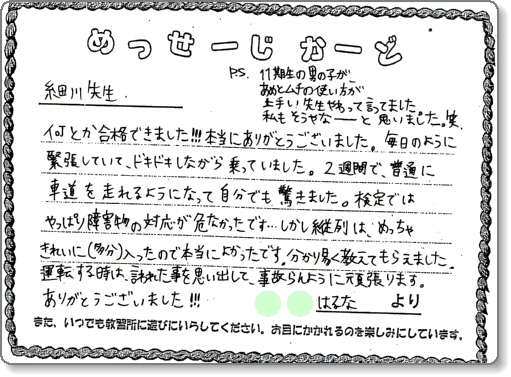 めっせーじかーど
細川先生.
P.S. 11期生の男の子が、
あめとムチの使い方が
上手い先生やねって言ってました
私もそうやなーーと思いました。笑
何とか合格できました!!!本当にありがとうございました。毎日のように
緊張していて、ドキドキしながら乗っていました。2週間で、普通に
車道を走れるようになって自分でも驚きました。検定では
やっぱり障害物の対応が危なかったです…しかし縦列は、めっちゃ
きれいに(多分)入ったので本当によかったです。分かり易く教えてもらえました。
運転する時は、言われた事を思い出して、事故らんように頑張ります。
ありがとうございました!!!
はるな より
また、いつでも教習所に遊びにいらしてください。お目にかかれるのを楽しみにしています。